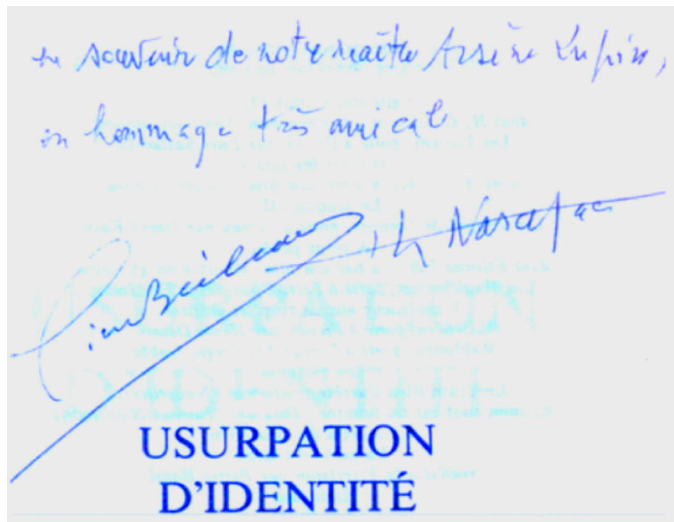 en souvenir de notre maître Arsène Lupin,
en hommage très amical
Pierre Boileau Th Narcejac
USURPATION
D'IDENTITÉ